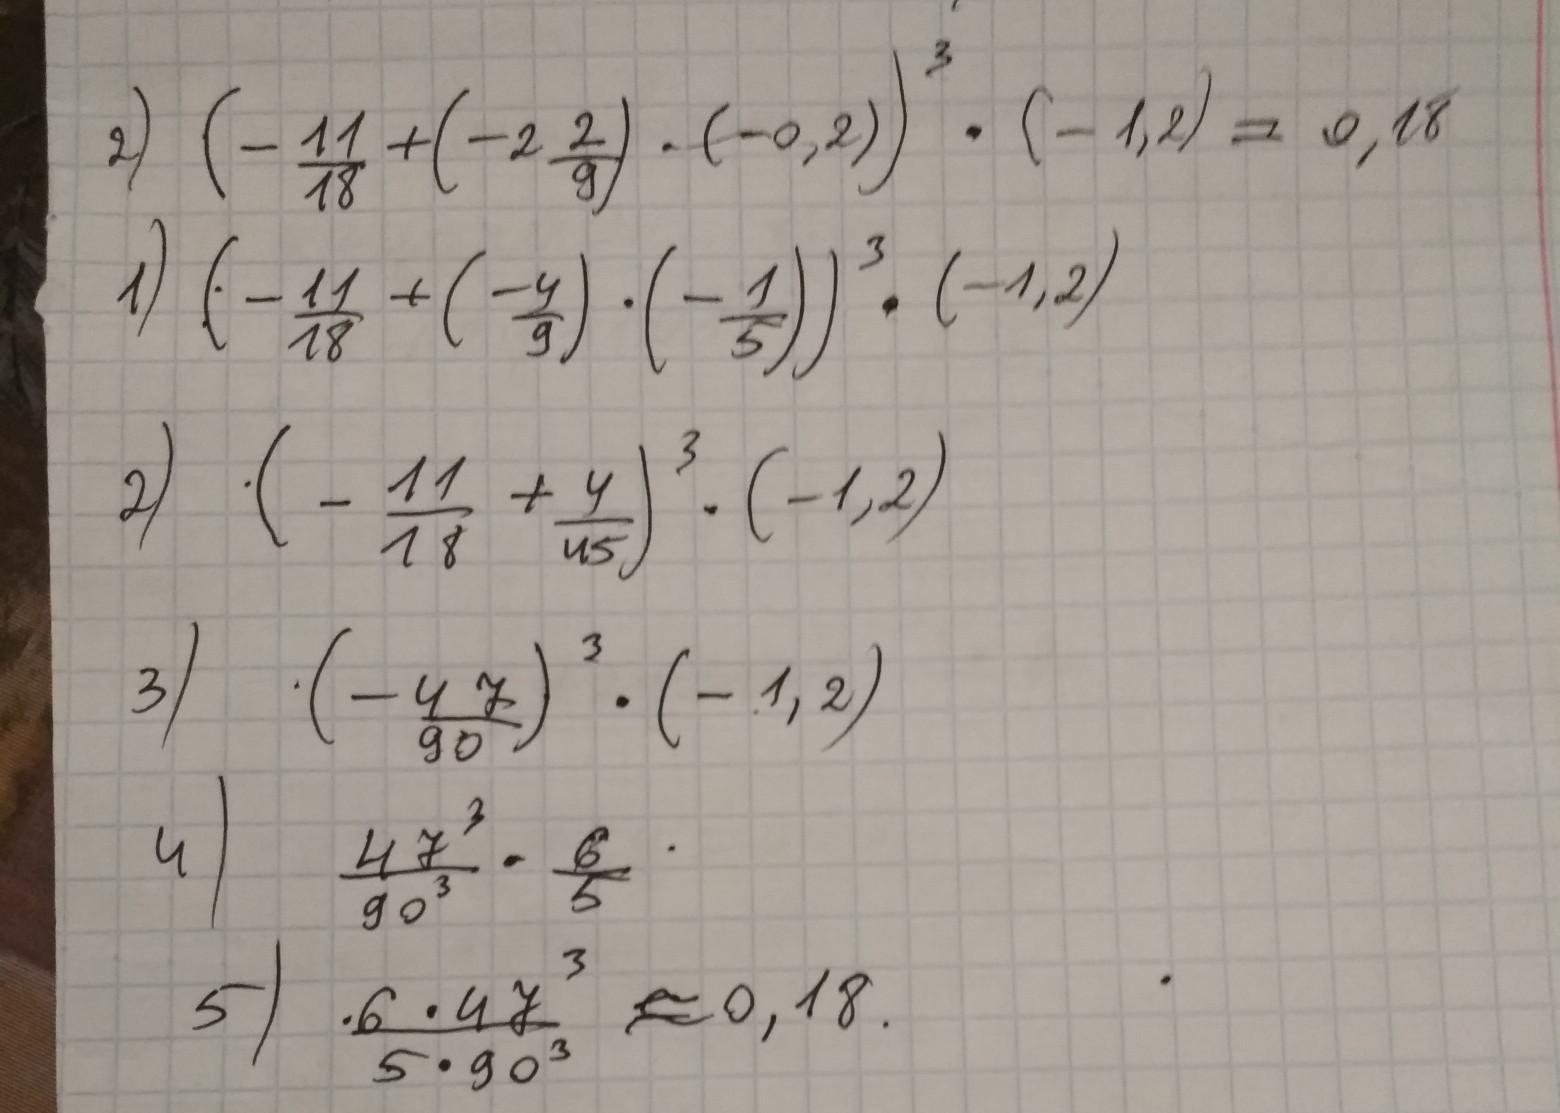 2) (-11/18 + (-2 2/9) · (-0,2))³ · (-1,2) = 0,18
1) (-11/18 + (-4/9) · (-1/5))³ · (-1,2)
2) (-11/18 + 4/45)³ · (-1,2)
3) (-47/90)³ · (-1,2)
4) 47³/90³ · 6/5
5) 6·47³/5·90³ ≈ 0,18.